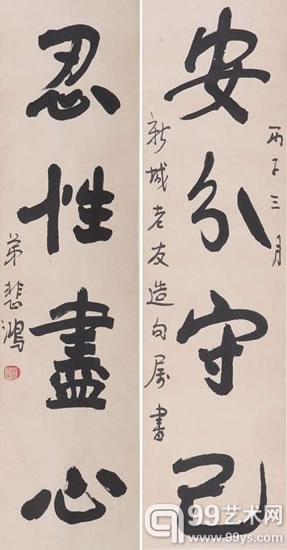 丙子三月
安分守己
新城老友造句属書
忍性盡心
弟悲鴻
99艺术网
www.99ys.com